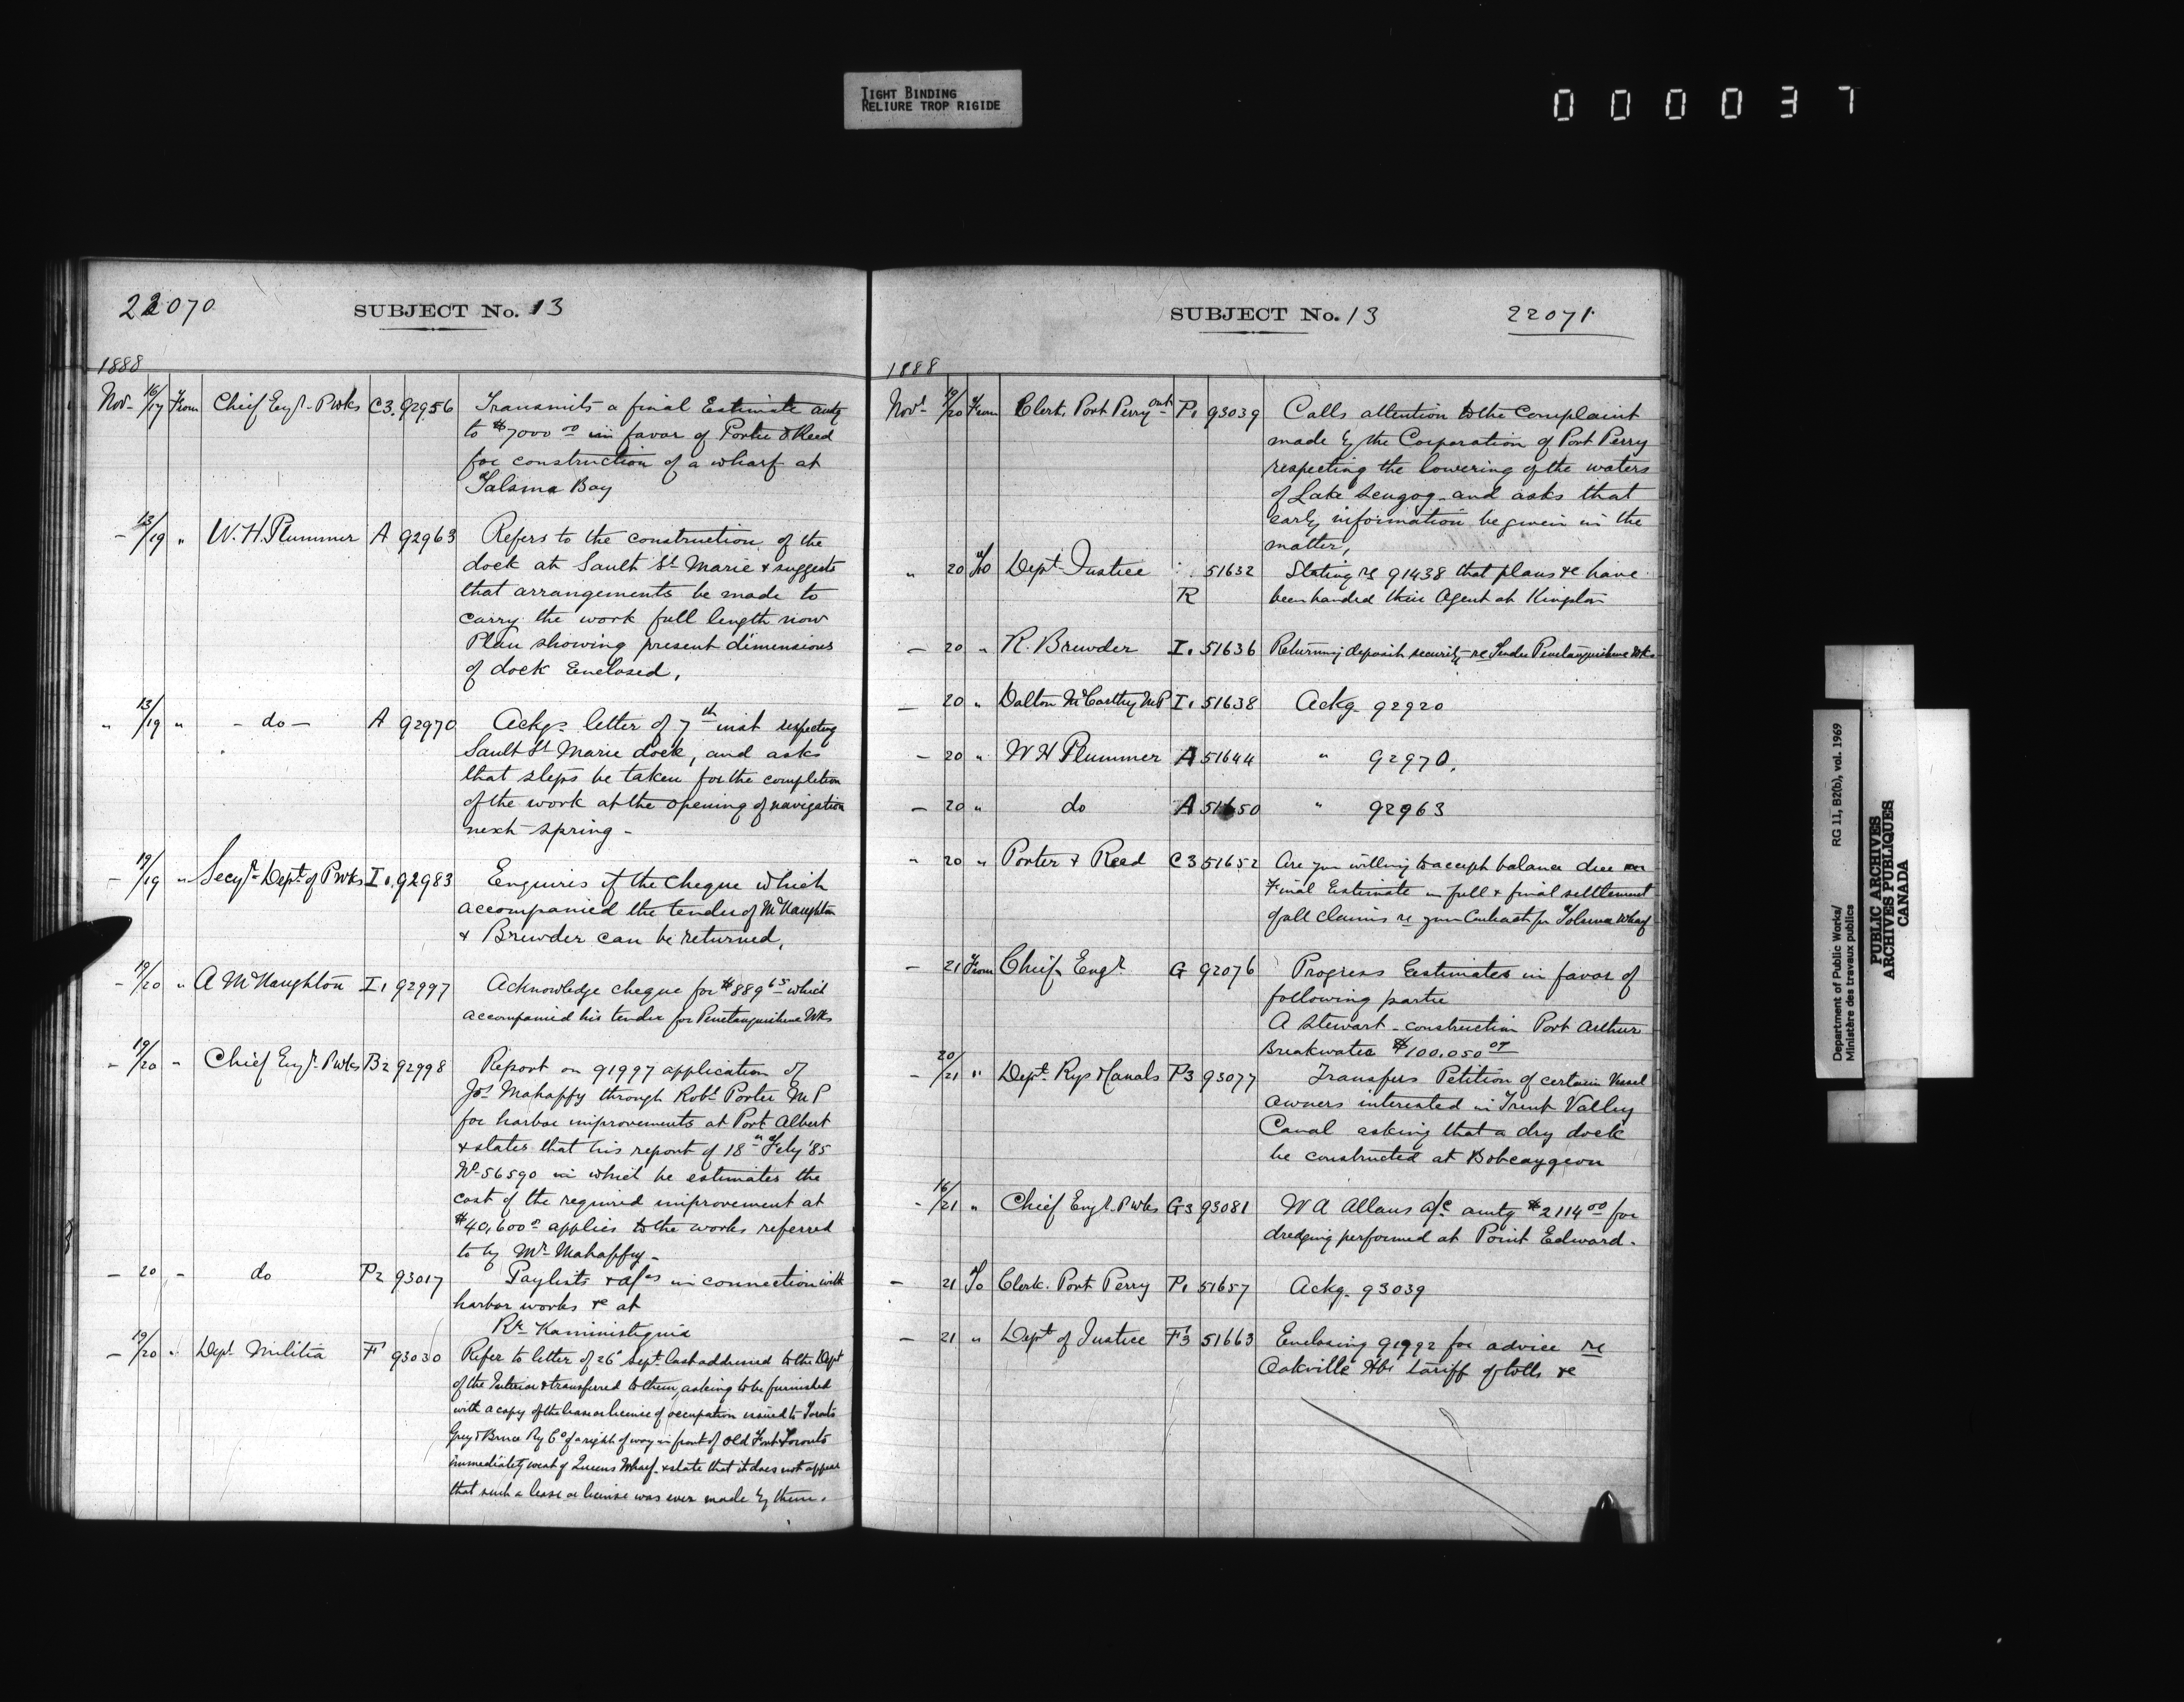 TIGHT BINDING
RELIURE TROP RIGIDE
000037
22070
SUBJECT No. 13
1888
Nov- 16/17 From Chief Engr. P Wks C3. 92956 Transmits a final Estimate amtg
to $7000 00 in favor of Porter & Reed
for construction of a wharf at
Tolsma Bay
- 13/19 " W. H. Plummer A 92963 Refers to the construction of the
dock at Sault St Marie & suggests
that arrangements be made to
carry the work full length now
Plan showing present dimensions
of dock Enclosed,
" 13/19 " - do - A 92970 Ackgs letter of 7th inst respecting
Sault St Marie dock, and asks
that steps be taken for the completion
of the work at the opening of navigation
next spring -
- 19/19 " Secy. Dept of P Wks I1. 92983 Enquires if the cheque which
accompanied the tender of McNaughton
& Brewder can be returned,
- 19/20 " A McNaughton I1 92997 Acknowledge cheque for $889 65 which
accompanied his tender for Penetanguishene Wks
- 19/20 - Chief Engr. P Wks B2 92998 Report on 91997 application of
Jos Mahaffy through Robt Porter M P
for harbor improvements at Port Albert
& states that his report of 18th Feby '85
No 56590 in which he estimates the
cost of the required improvement at
$40,600 00 applies to the works referred
to by Mr Mahaffy -
- 20 - do P2 93017 Paylists & a/cs in connection with
harbor works &c at
Rr Kaministiquia
- 19/20 " Dept Militia F 93030 Refer to letter of 26 Sept. last addressed to the Dept
of the Interior & transferred to them, asking to be furnished
with a copy of the lease or license of occupation issued to Toronto
Grey & Bruce Ry Co of a right of way in front of Old Fort Toronto
immediately west of Queens Wharf & state that it does not appear
that such a lease or license was ever made by them.
SUBJECT No. 13
22071
1888
Novr 19/20 From Clerk, Port Perry Ont P1 93039 Calls attention to the Complaint
made by the Corporation of Port Perry
respecting the lowering of the waters
of Lake Scugog and asks that
early information be given in the
matter,
" 20 To Dept Justice R 51632 Stating re 91438 that plans &c have
been handed their Agent at Kingston
- 20 " R. Brewder I1 51636 Returning deposit security re Tender Penetanguishene Wks
- 20 " Dalton McCarthy MP I1 51638 Ackg. 92920
- 20 " W H Plummer A 51644 " 92970,
- 20 " do A 51650 " 92963
" 20 " Porter & Reed C3 51652 Are you willing to accept balance due on
Final Estimate in full & final settlement
of all claims re your Contract for Tolsma Wharf
- 21 From Chief Engr G 92076 Progress Estimates in favor of
following partie
A Stewart - construction Port Arthur
Breakwater $100,050 00
- 20/21 " Dept. Rys & Canals P3 93077 Transfers Petition of certain Vessel
owners interested in Trent Valley
Canal asking that a dry dock
be constructed at Bobcaygeon
- 16/21 " Chief Engr. P Wks G3 93081 W A Allans a/c amtg $2114 00 for
dredging performed at Point Edward.
- 21 To Clerk. Port Perry P1 51657 Ackg. 93039
- 21 " Dept of Justice F3 51663 Enclosing 91992 for advice re
Oakville Hbr tariff of tolls &c
Department of Public Works/
Ministère des travaux publics
RG 11, B2(b), vol. 1969
PUBLIC ARCHIVES
ARCHIVES PUBLIQUES
CANADA